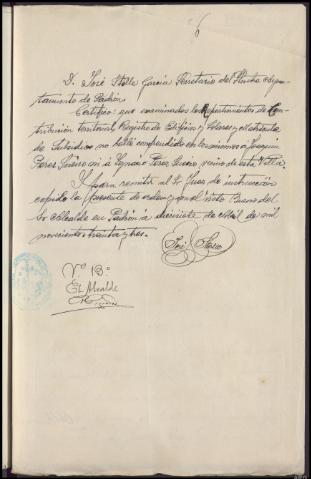 6
D. José García Secretario del Ilustre Ayun-
tamiento de Padrón.
Certifico: que examinados los Repartimientos de Con-
tribución territorial, Registro de Edificios y Solares y Matrícula
de Subsidio, no hallé comprendido en los mismos a Joaquín
Peres ni á Ignacio Peres vecino de esta Villa.
Y para remitir al Sr Juez de instrucción
expido la presente de orden y con el visto Bueno del
Sr Alcalde en Padrón á diecisiete de Abril de mil
novecientos treinta y tres.
José
Vº Bº
El Alcalde